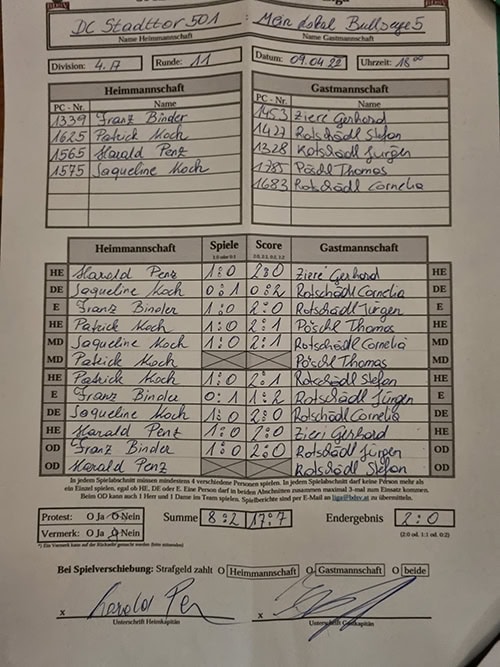 DC Stadttor 501 : Mein Lokal Bullseye 5
Name Heimmannschaft Name Gastmannschaft
Division: 4.A Runde: 11 Datum: 09.04.22 Uhrzeit: 18⁰⁰
Heimmannschaft Gastmannschaft
PC - Nr. Name PC - Nr. Name
1339 Franz Binder 1453 Ziere Gerhard
1625 Patrick Koch 1427 Rotschädl Stefan
1565 Harald Penz 1328 Rotschädl Jürgen
1575 Jaqueline Koch 1785 Pöschl Thomas
1683 Rotschädl Cornelia
Heimmannschaft Spiele Score Gastmannschaft
1:0 oder 0:1 2:0, 2:1, 0:2, 1:2
HE Harald Penz 1:0 2:0 Ziere Gerhard HE
DE Jaqueline Koch 0:1 0:2 Rotschädl Cornelia DE
E Franz Binder 1:0 2:0 Rotschädl Jürgen E
HE Patrick Koch 1:0 2:1 Pöschl Thomas HE
MD Jaqueline Koch 1:0 2:1 Rotschädl Cornelia MD
MD Patrick Koch Pöschl Thomas MD
HE Patrick Koch 1:0 2:1 Rotschädl Stefan HE
E Franz Binder 0:1 1:2 Rotschädl Jürgen E
DE Jaqueline Koch 1:0 2:0 Rotschädl Cornelia DE
HE Harald Penz 1:0 2:0 Ziere Gerhard HE
OD Franz Binder 1:0 2:0 Rotschädl Jürgen OD
OD Harald Penz Rotschädl Stefan OD
In jedem Spielabschnitt müssen mindestens 4 verschiedene Personen spielen. In jedem Spielabschnitt darf keine Person mehr als
ein Einzel spielen, egal ob HE, DE oder E. Eine Person darf in beiden Abschnitten zusammen maximal 3-mal zum Einsatz kommen.
Beim OD kann auch 1 Herr und 1 Dame im Team spielen. Spielberichte sind per E-Mail an liga@bdsv.at zu übermitteln.
Protest: O Ja O Nein Summe 8:2 17:7 Endergebnis 2:0
Vermerk: O Ja O Nein (2:0 od. 1:1 od. 0:2)
*) Ein Vermerk kann auf der Rückseite gemacht werden. Bitte mitsenden!
Bei Spielverschiebung: Strafgeld zahlt O Heimmannschaft O Gastmannschaft O beide
x Harald Pen x
Unterschrift Heimkapitän Unterschrift Gastkapitän